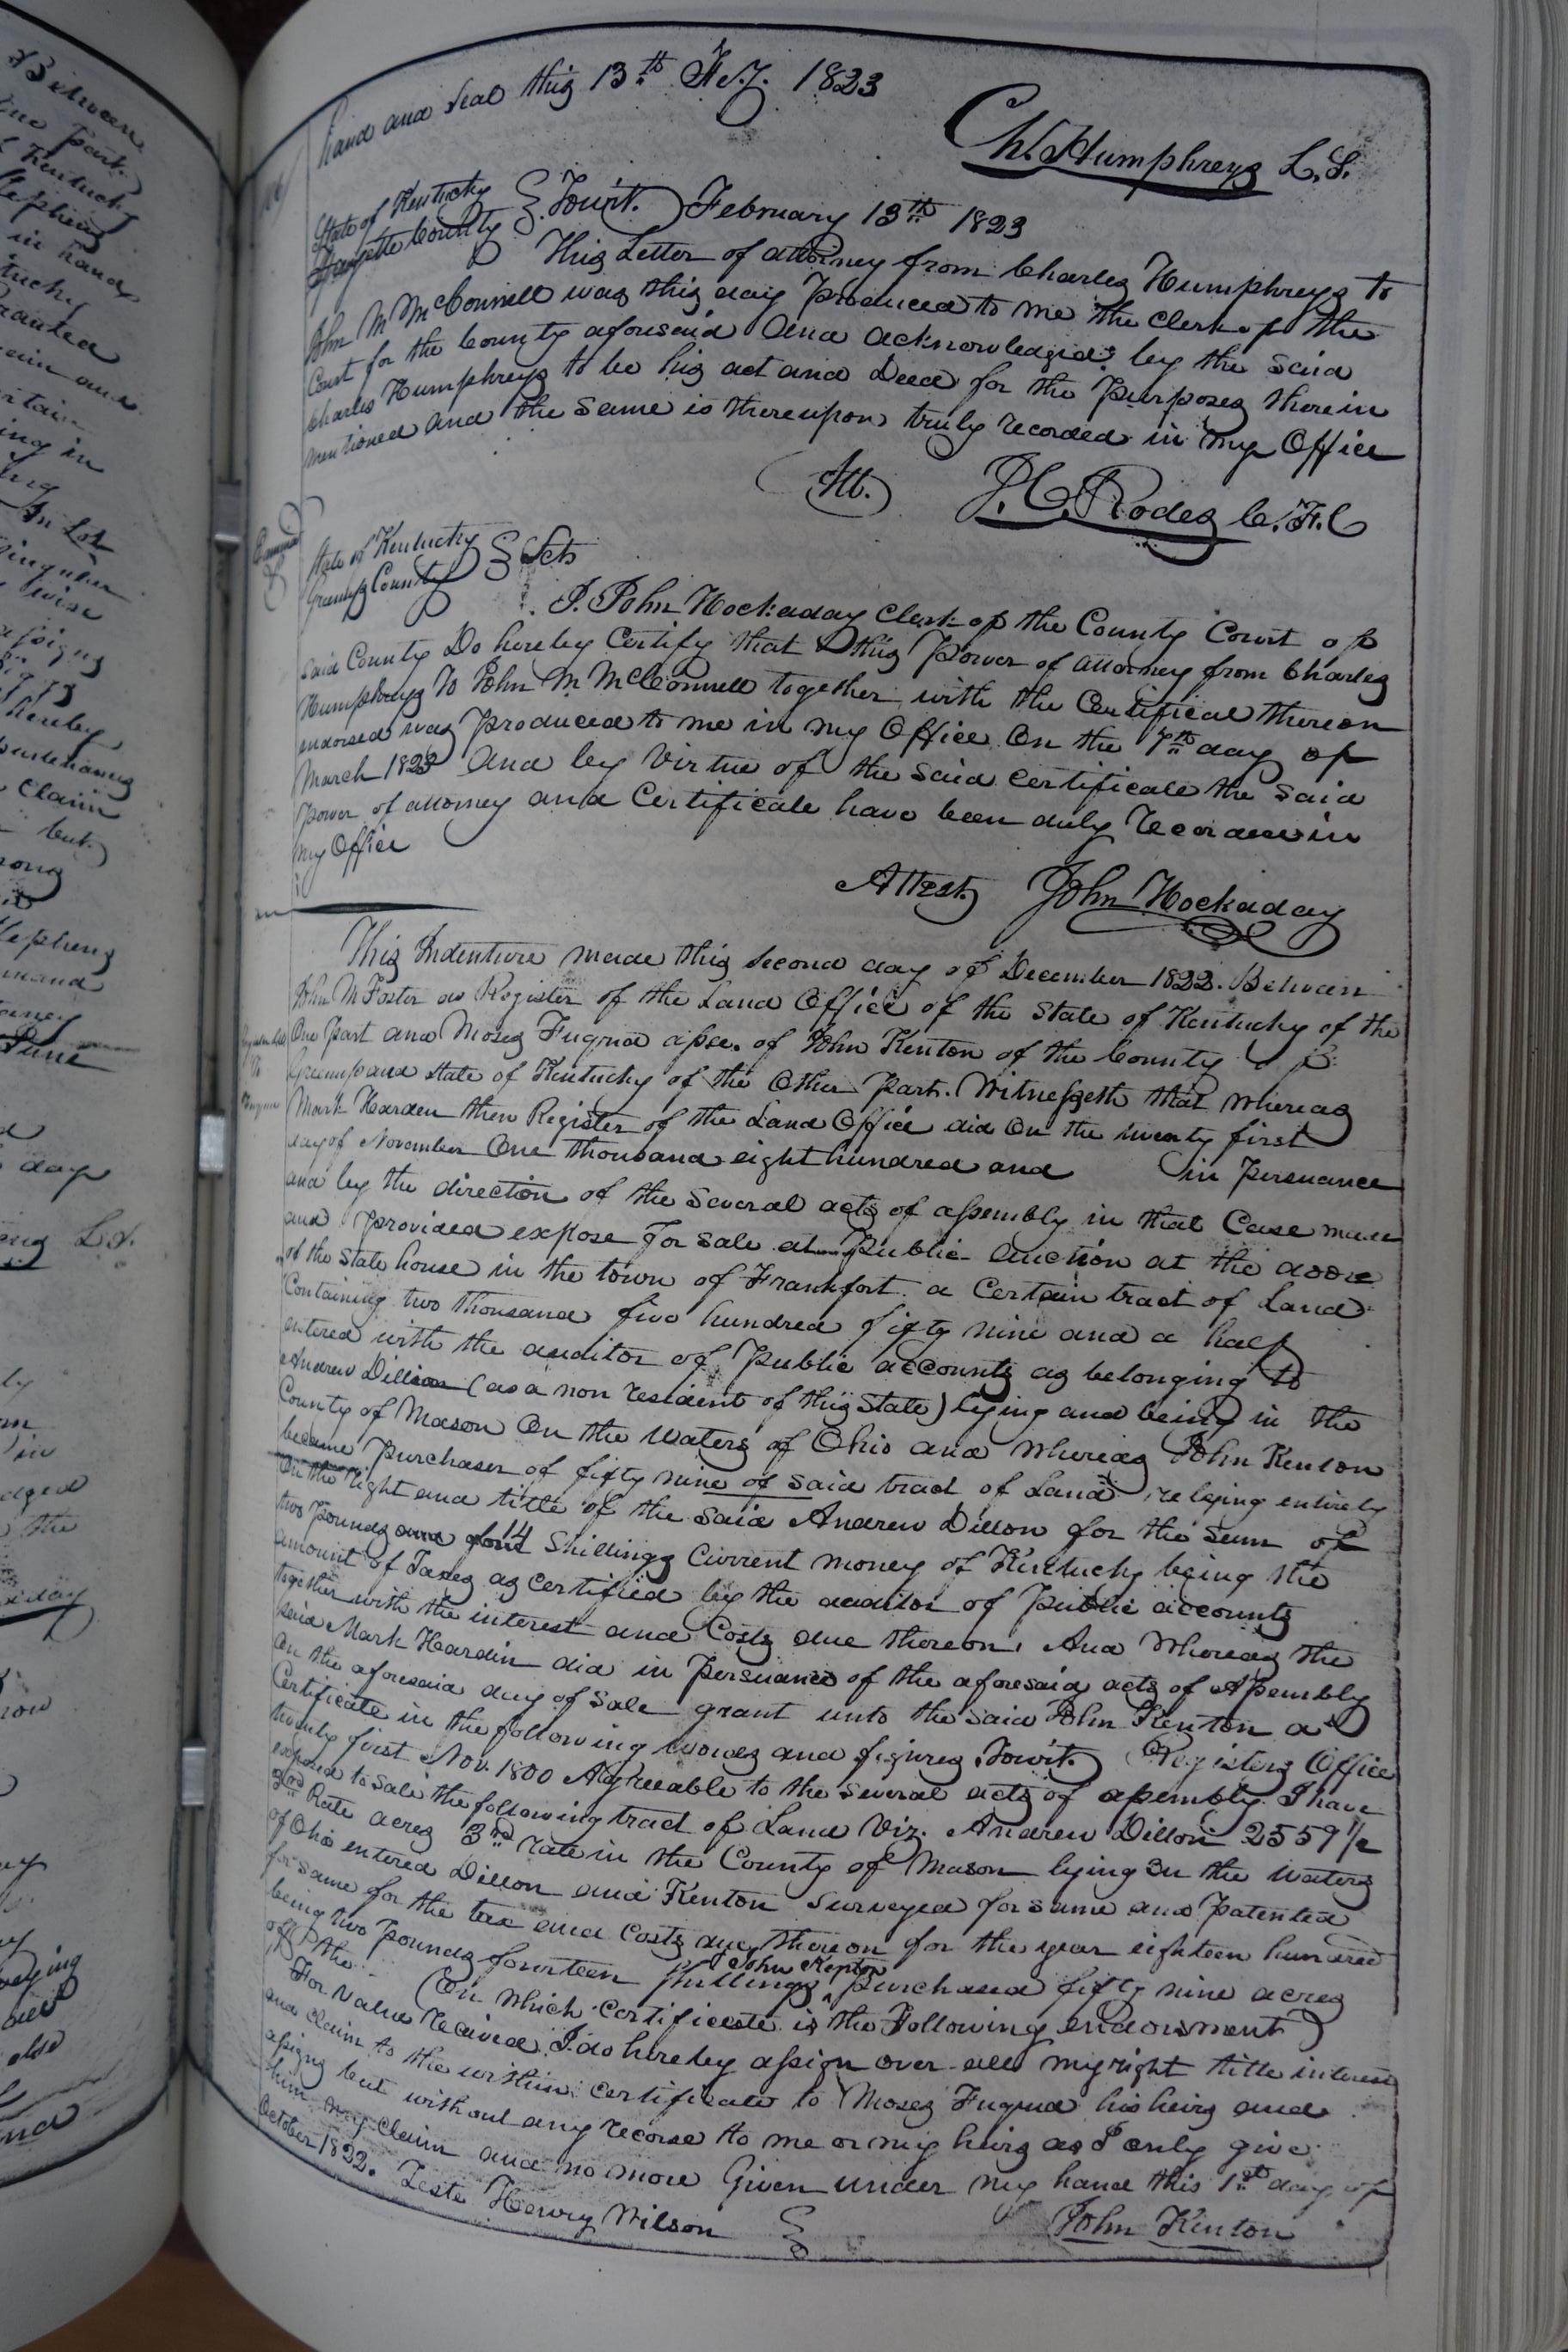 hand and Seal this 13th Feby. 1823
Ch. Humphreys L.S.
State of Kentucky
Fayette County Towit. February 13th 1823
This Letter of attorney from Charles Humphreys to
John M McConnell was this day Produced to me the Clerk of the
Court for the County aforesaid and acknowledged by the said
Charles Humphreys to be his act and Deed for the Purposes therein
mentioned and the same is thereupon truly recorded in my Office
Att. J. C. Rodes C.F.C
State of Kentucky
Greenup County Sct
I. John Hockaday Clerk of the County Court of
said County Do hereby Certify that this Power of attorney from Charles
Humphreys To John M McConnell together with the Certificate thereon
endorsed was Produced to me in my Office On the 7th day of
March 1823 and by Virtue of the said certificate the said
Power of attorney and Certificate have been duly Recorded in
my Office
Attest John Hockaday
This Indenture made this second day of December 1822. Between
John M Foster as Register of the Land Office of the State of Kentucky of the
One Part and Moses Fuqua assee. of John Kenton of the County of
Greenup and state of Kentucky of the Other Part. Witnesseth that whereas
Mark Harden then Register of the Land Office did On the twenty first
day of November One thousand eight hundred and in Persuance
and by the direction of the several acts of assembly in that Case made
and Provided expose for sale at Public auction at the doore
of the state house in the town of Frankfort a Certain tract of Land
Containing two thousand five hundred fifty nine and a half
entered with the auditor of Public accounts as belonging to
Andrew Dillon (as a non resident of this State) lying and being in the
County of Mason On the waters of Ohio and whereas John Kenton
became Purchaser of fifty nine of said tract of Land relying entirely
On the right and title of the said Andrew Dillon for the sum of
two Pounds 14 Shillings Current money of Kentucky being the
amount of Taxes as certified by the auditor of Public accounts
together with the interest and Costs due thereon, And Whereas the
said Mark Hardin did in Persuance of the aforesaid acts of Assembly
On the aforesaid day of Sale grant unto the said John Kenton a
Certificate in the following words and figures, Towit. Registers Office
twenty first Nov. 1800 Agreeable to the several acts of assembly I have
exposed to sale the following tract of Land Viz. Andrew Dillon 2559 1/2
2nd Rate acres 3rd rate in the County of Mason lying On the waters
of Ohio entered Dillon and Kenton surveyed for same and Patented
for same for the tax and Costs due thereon for the year eighteen hundred
being two Pounds fourteen shillings John Kenton Purchased fifty nine acres
off the (On which certificate is the Following endorsment)
For Value Received I do hereby assign over all my right title interest
and claim to the within certificate to Moses Fuqua his heirs and
assigns but without any recorse to me or my heirs as I only give
him my Claim and no more Given under my hand this 1st day of
October 1822. Teste Henry Wilson John Kenton